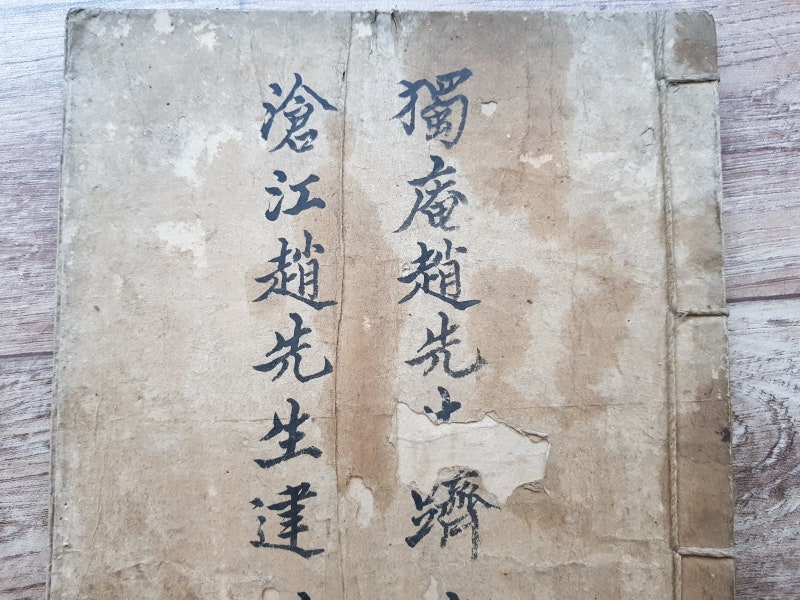 獨庵趙先 躋
滄江趙先生建